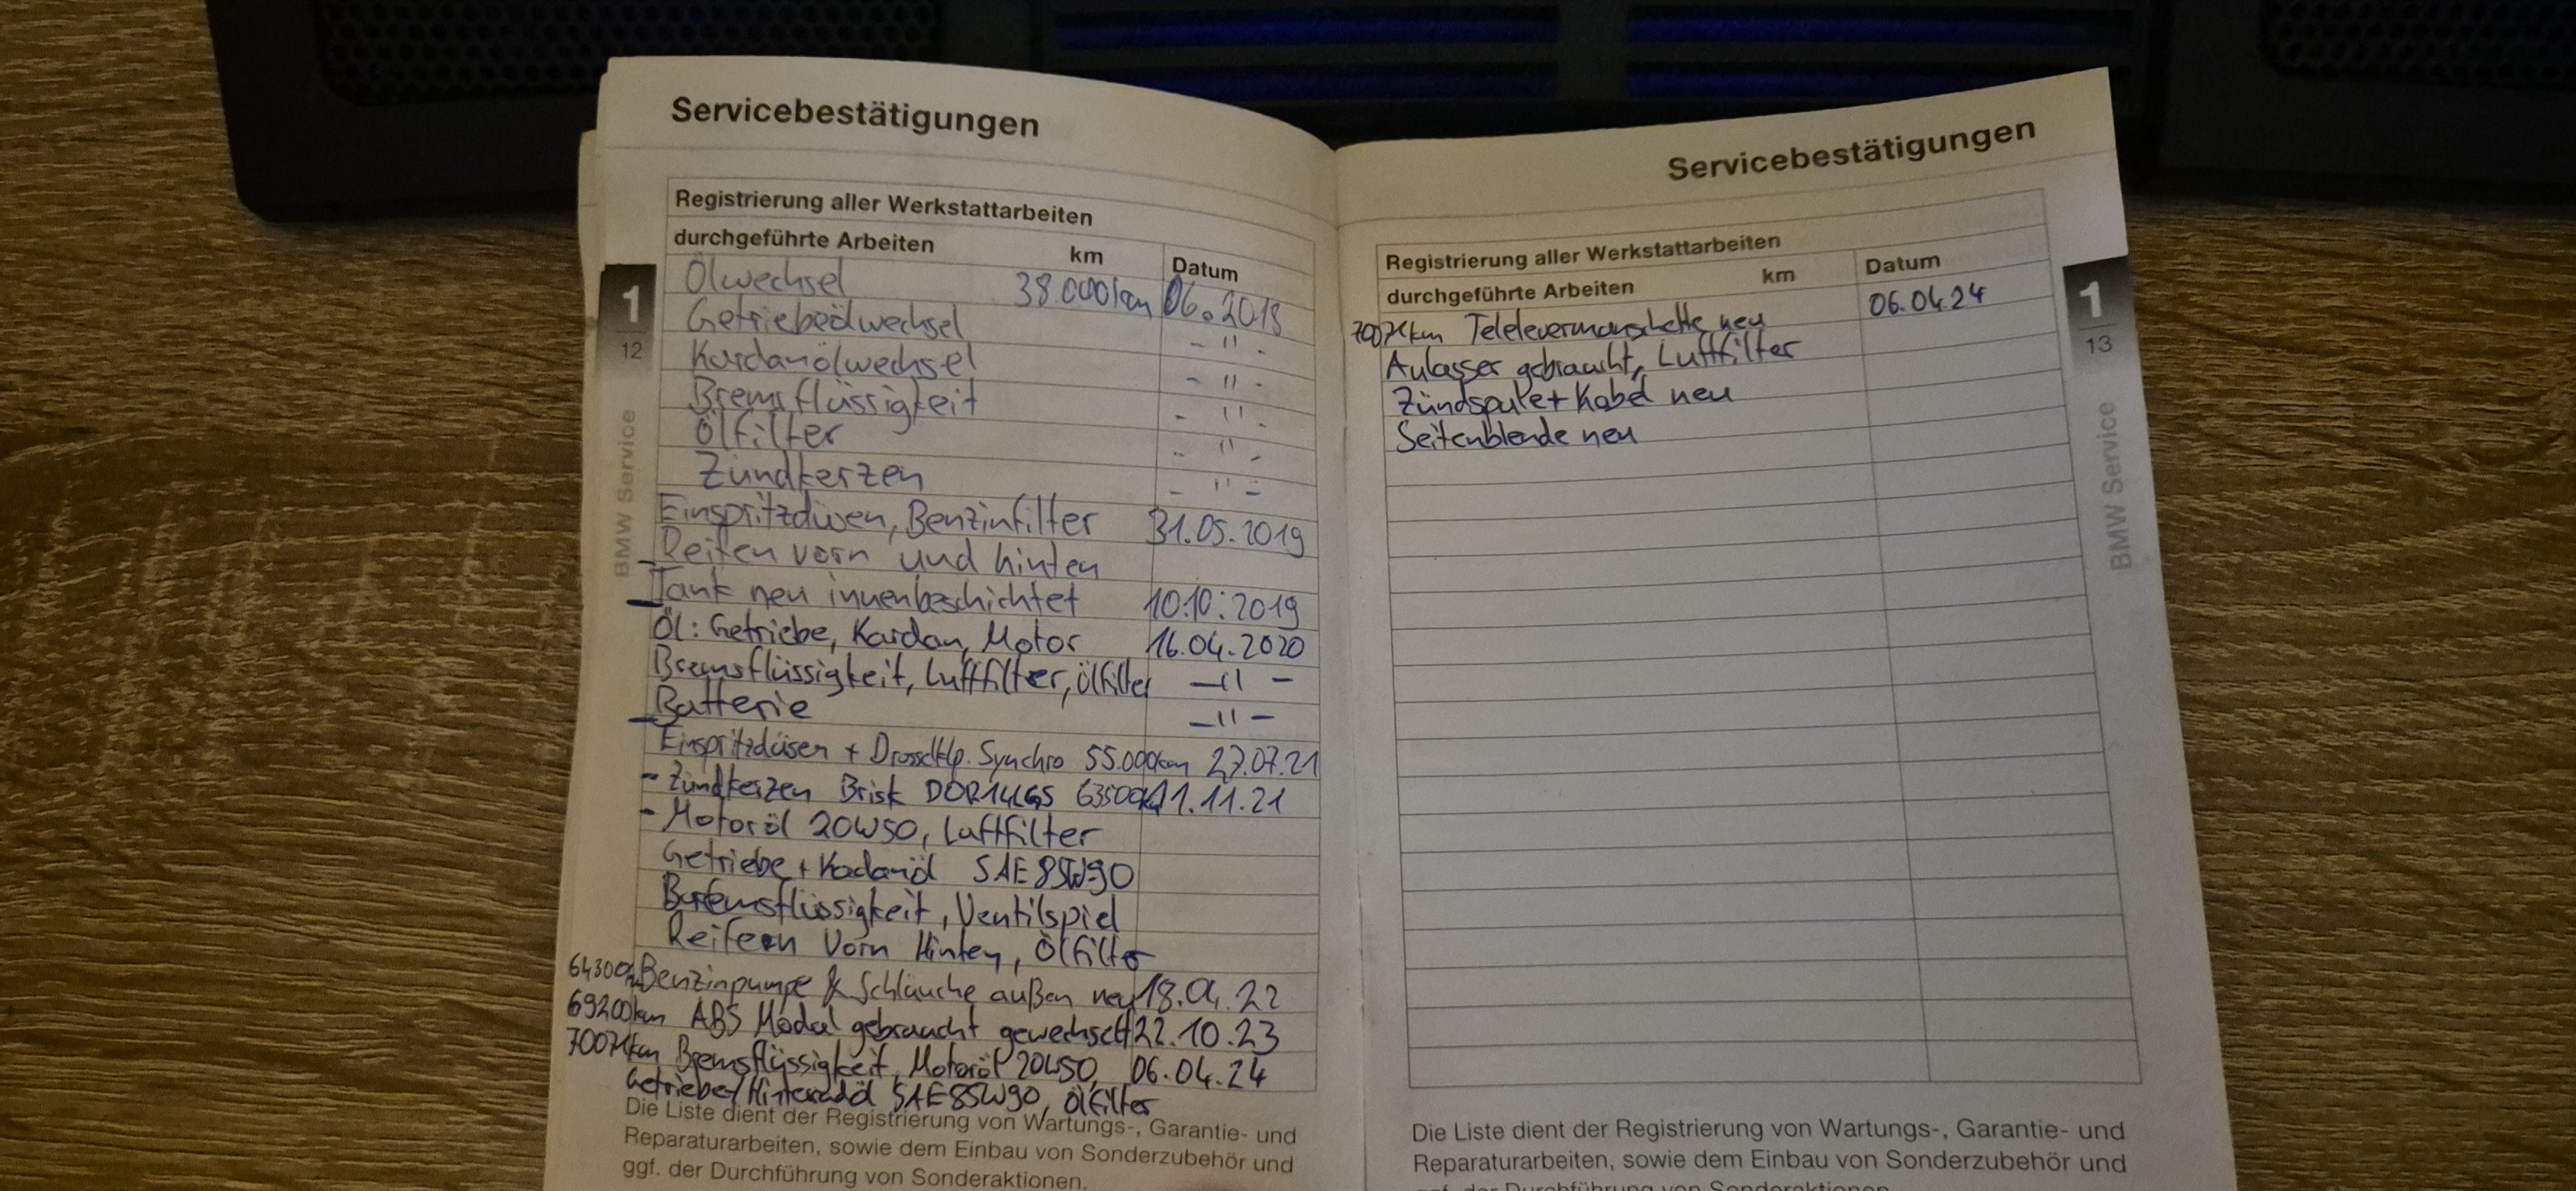 Servicebestätigungen
Registrierung aller Werkstattarbeiten
durchgeführte Arbeiten km Datum
Ölwechsel 38.000km 06.2018
Getriebeölwechsel - " -
Kardanölwechsel - " -
Bremsflüssigkeit - " -
Ölfilter - " -
Zündkerzen - " -
Einspritzdüsen, Benzinfilter 31.05.2019
Reifen vorn und hinten
Tank neu innenbeschichtet 10.10.2019
Öl: Getriebe, Kardan, Motor 16.04.2020
Bremsflüssigkeit, Luftfilter, Ölfilter - " -
Batterie - " -
Einspritzdüsen + Drosselklp. Synchro 55.000km 27.07.21
- Zündkerzen Brisk DOR14LGS 63500 11.11.21
- Motoröl 20W50, Luftfilter
Getriebe + Kardanöl SAE 85W90
Bremsflüssigkeit, Ventilspiel
Reifen Vorn Hinten, Ölfilter
64300 Benzinpumpe & Schläuche außen neu 18.04.22
69200km ABS Modul gebraucht gewechselt 22.10.23
70071km Bremsflüssigkeit, Motoröl 20W50, 06.04.24
Getriebe/Hinterradöl SAE85W90, Ölfilter
Die Liste dient der Registrierung von Wartungs-, Garantie- und
Reparaturarbeiten, sowie dem Einbau von Sonderzubehör und
ggf. der Durchführung von Sonderaktionen.
1
12
BMW Service
Servicebestätigungen
Registrierung aller Werkstattarbeiten
durchgeführte Arbeiten km Datum
70071km Telelevermanschette neu 06.04.24
Anlasser gebraucht, Luftfilter
Zündspule + Kabel neu
Seitenblende neu
1
13
BMW Service
Die Liste dient der Registrierung von Wartungs-, Garantie- und
Reparaturarbeiten, sowie dem Einbau von Sonderzubehör und
ggf. der Durchführung von Sonderaktionen